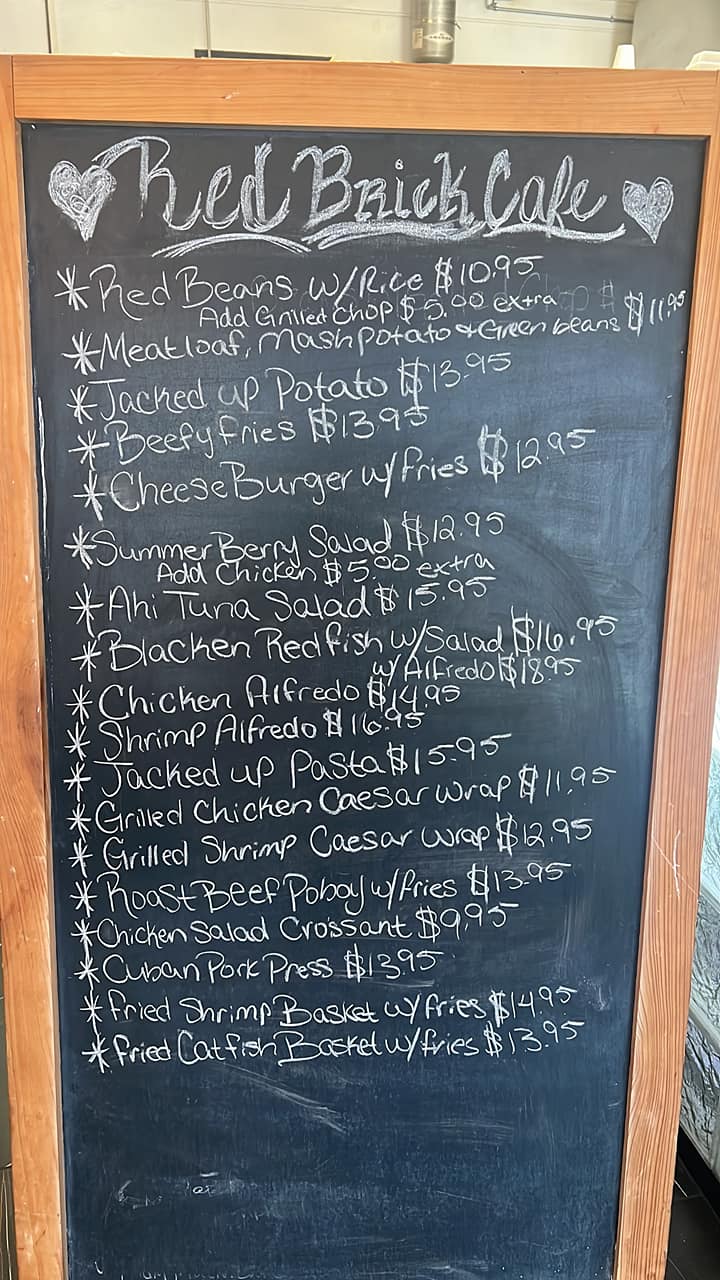 Red Brick Cafe
* Red Beans w/Rice $10.95
Add Grilled Chop $5.00 extra
* Meatloaf, Mash Potato & Green beans $11.95
* Jacked up Potato $13.95
* Beefy Fries $13.95
* Cheese Burger w/fries $12.95
* Summer Berry Salad $12.95
Add Chicken $5.00 extra
* Ahi Tuna Salad $15.95
* Blacken Redfish w/Salad $16.95
w/Alfredo $18.95
* Chicken Alfredo $14.95
* Shrimp Alfredo $16.95
* Jacked up Pasta $15.95
* Grilled Chicken Caesar wrap $11.95
* Grilled Shrimp Caesar wrap $12.95
* Roast Beef Poboy w/fries $13.95
* Chicken Salad Croissant $9.95
* Cuban Pork Press $13.95
* Fried Shrimp Basket w/fries $14.95
* Fried Catfish Basket w/fries $13.95